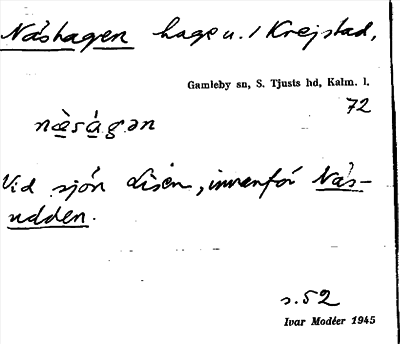 Näshagen hage u. 1 Krejstad,
Gamleby sn, S. Tjusts hd, Kalm. l.
72
næ̀ságən
Vid sjön Disen, innanför Näs-
udden.
s. 52
Ivar Modéer 1945